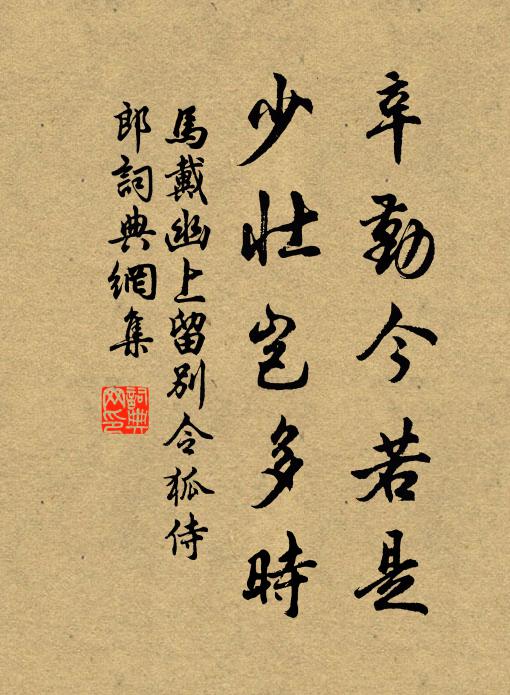 辛勤今若是
少壯豈多時
馬戴幽上留別令狐侍
郎詞典網集
詞典網印